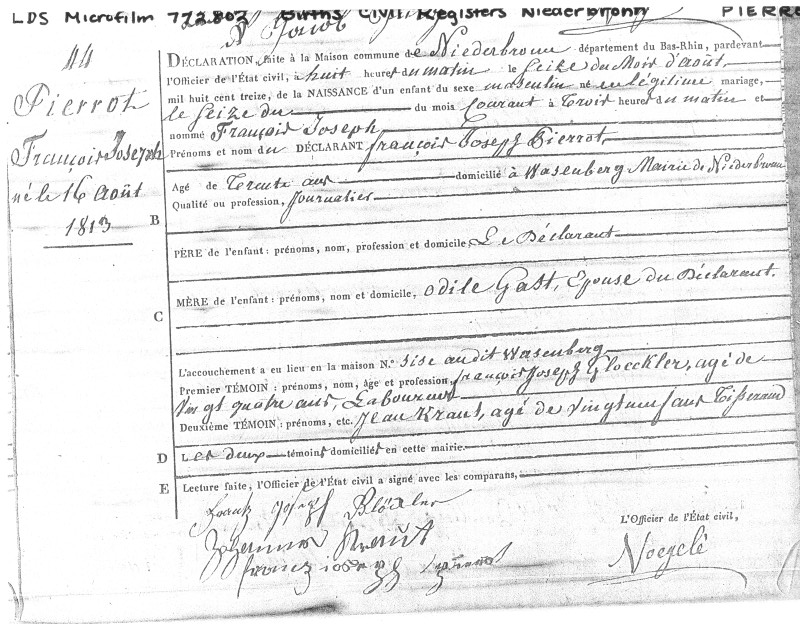 LDS Microfilm 772.802 Births Civil Registers Niederbronn PIERRE
44
Pierrot
François Joseph
né le 16 Août
1813
DÉCLARATION faite à la Maison commune de Niederbronn département du Bas-Rhin, pardevant
l'Officier de l'État civil, à huit heures du matin le Seize du Mois d'Août,
mil huit cent treize, de la NAISSANCE d'un enfant du sexe masculin né en légitime mariage,
le Seize du du mois Courant à Trois heures du matin et
nommé François Joseph
Prénoms et nom du DÉCLARANT françois Joseph Pierrot,
Agé de Trente ans domicilié à Wasenberg Mairie de Niederbronn
Qualité ou profession, Journalier
B
PÈRE de l'enfant : prénoms, nom, profession et domicile Le Déclarant
MÈRE de l'enfant : prénoms, nom et domicile, Odile Gast, Epouse du Déclarant.
C
L'accouchement a eu lieu en la maison N.° sise audit Wasenberg
Premier TÉMOIN : prénoms, nom, âge et profession, françois Joseph Gloeckler, agé de
Vingt quatre ans, Laboureur
Deuxième TÉMOIN : prénoms, etc. Jean Kraut, agé de vingt neuf ans Tisserand
D Les deux témoins domiciliés en cette mairie.
E Lecture faite, l'Officier de l'État civil a signé avec les comparans,
Frantz Joseph
Johannes Kraut
franz joseph
L'Officier de l'État civil,
Noegelé